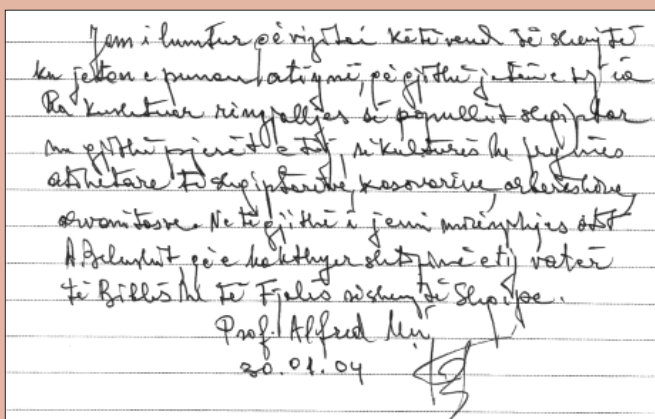 Jam i lumtur që vizitoi këtë vend të shenjtë
ku jeton e punon, ati ynë, që gjithë jetën e tij ia
ka kushtuar ringjalljes së popullit shqiptar
me gjithë pjesët e tij, si kulturës he
atdhetare të shqiptarëve, kosovarëve, arbëreshëve,
arvanitasve. Ne të gjithë i jemi mirënjohjes
A. Belushit që e ka kthyer shtëpinë e tij vatër
të Biblës he të Fjalës së shenjtë Shqipe.
Prof. Alfred
30.01.04